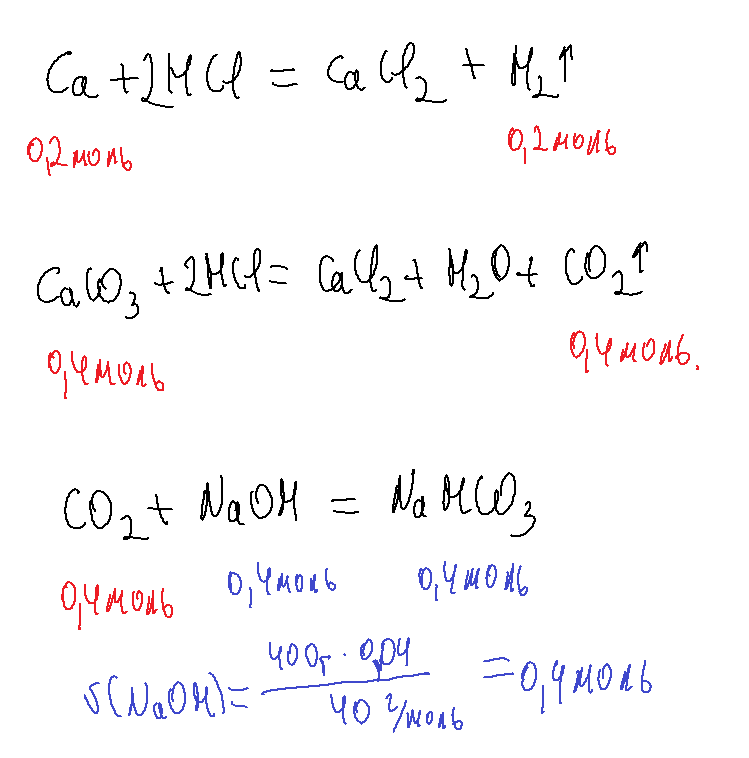 Ca + 2HCl = CaCl₂ + H₂↑
0,2 моль 0,2 моль
CaCO₃ + 2HCl = CaCl₂ + H₂O + CO₂↑
0,4 моль 0,4 моль.
CO₂ + NaOH = NaHCO₃
0,4 моль 0,4 моль 0,4 моль
ν(NaOH) = 400г · 0,04 / 40 г/моль = 0,4 моль